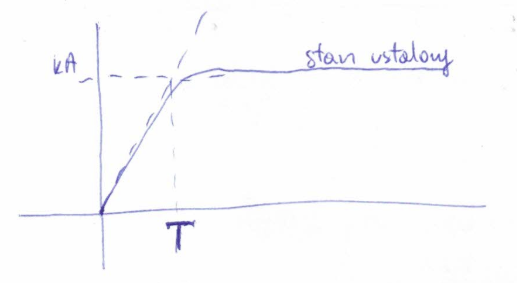 kA
stan ustalony
T